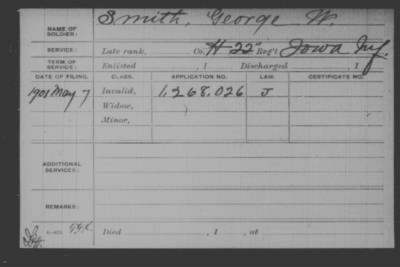 NAME OF SOLDIER: Smith, George W.
SERVICE: Late rank, Co. H-22" Reg't Iowa Inf.
TERM OF SERVICE: Enlisted , 1 Discharged , 1
DATE OF FILING. CLASS. APPLICATION NO. LAW. CERTIFICATE NO.
1901 May 7 Invalid, 1,268,026 J
Widow,
Minor,
ADDITIONAL SERVICES:
REMARKS:
Died , 1 , at